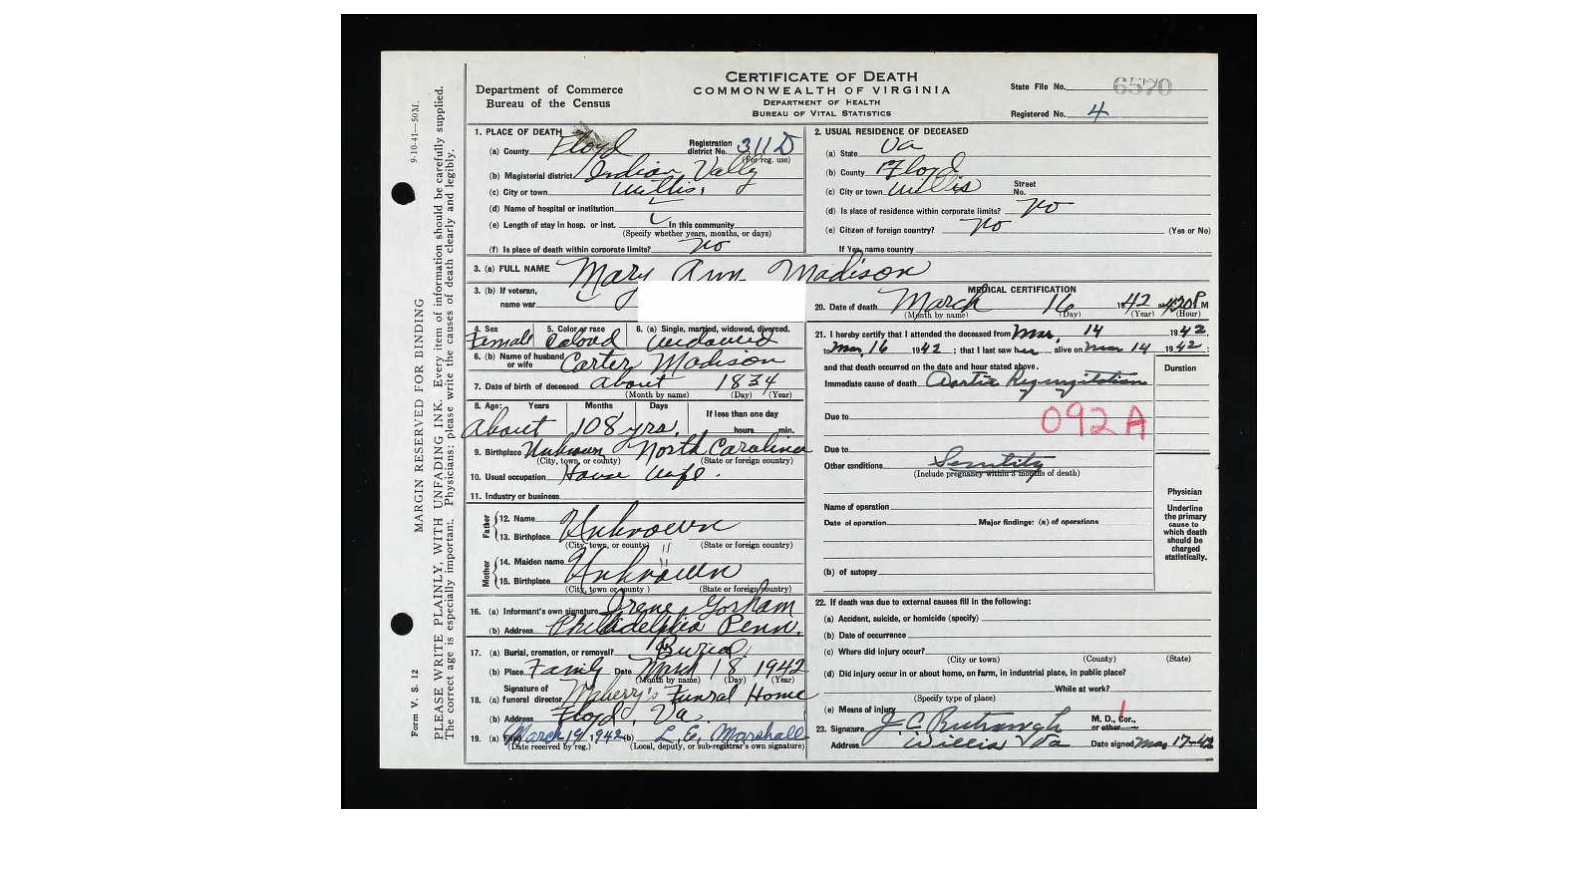 CERTIFICATE OF DEATH
COMMONWEALTH OF VIRGINIA
DEPARTMENT OF HEALTH
BUREAU OF VITAL STATISTICS
Department of Commerce
Bureau of the Census
State File No. 6570
Registered No. 4
9-10-41—50M.
MARGIN RESERVED FOR BINDING
PLEASE WRITE PLAINLY, WITH UNFADING INK. Every item of information should be carefully supplied.
The correct age is especially important. Physicians: please write the causes of death clearly and legibly.
Form V. S. 12
1. PLACE OF DEATH
(a) County Floyd Registration district No. 311 D
(For reg. use)
(b) Magisterial district Indian Vally
(c) City or town Willis,
(d) Name of hospital or institution
(e) Length of stay in hosp. or inst. In this community
(Specify whether years, months, or days)
(f) Is place of death within corporate limits? no
2. USUAL RESIDENCE OF DECEASED
(a) State Va
(b) County Floyd
(c) City or town Willis Street No.
(d) Is place of residence within corporate limits? no
(e) Citizen of foreign country? no (Yes or No)
If Yes, name country
3. (a) FULL NAME Mary Ann Madison
3. (b) If veteran,
name war
4. Sex 5. Color or race 6. (a) Single, married, widowed, divorced.
Female Colored Widowed
6. (b) Name of husband or wife Carter Madison
7. Date of birth of deceased About 1834
(Month by name) (Day) (Year)
8. Age: Years Months Days If less than one day
About 108 yrs. hours min.
9. Birthplace Unknown North Carolina
(City, town, or county) (State or foreign country)
10. Usual occupation House Wife.
11. Industry or business
Father
12. Name Unknown
13. Birthplace "
(City, town, or county) (State or foreign country)
Mother
14. Maiden name Unknown
15. Birthplace "
(City, town or county) (State or foreign country)
16. (a) Informant's own signature Irene Gorham
(b) Address Philadelphia Penn.
17. (a) Burial, cremation, or removal? Burial
(b) Place Family Date March 18 1942
(Month by name) (Day) (Year)
18. (a) Signature of funeral director Maberry's Funral Home
(b) Address Floyd, Va.
19. (a) Filed March 19 1942 (b) L. E. Marshall
(Date received by reg.) (Local, deputy, or sub-registrar's own signature)
MEDICAL CERTIFICATION
20. Date of death March 16 1942 4:20 P M
(Month by name) (Day) (Year) (Hour)
21. I hereby certify that I attended the deceased from Mar, 14 1942
to Mar, 16 1942; that I last saw her alive on Mar 14 1942;
and that death occurred on the date and hour stated above. Duration
Immediate cause of death Aortic Regurgitation
092 A
Due to
Due to
Other conditions Senility
(Include pregnancy within 3 months of death)
Name of operation
Date of operation Major findings: (a) of operations
(b) of autopsy
Physician
Underline
the primary
cause to
which death
should be
charged
statistically.
22. If death was due to external causes fill in the following:
(a) Accident, suicide, or homicide (specify)
(b) Date of occurrence
(c) Where did injury occur?
(City or town) (County) (State)
(d) Did injury occur in or about home, on farm, in industrial place, in public place?
While at work?
(Specify type of place)
(e) Means of injury
23. Signature J. C. M. D., Cor., or other
Address Willis Va Date signed Mar 17-42